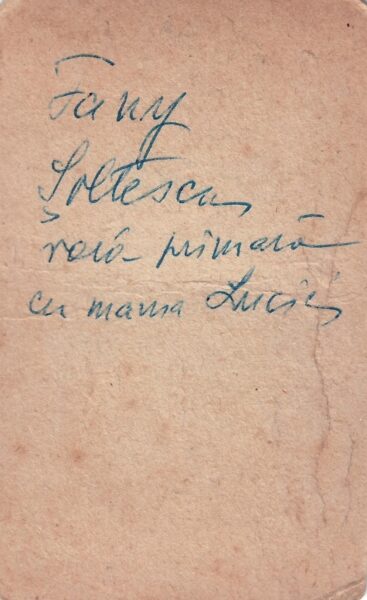 Fany
Soltescu
vară primară
cu mama Luciei